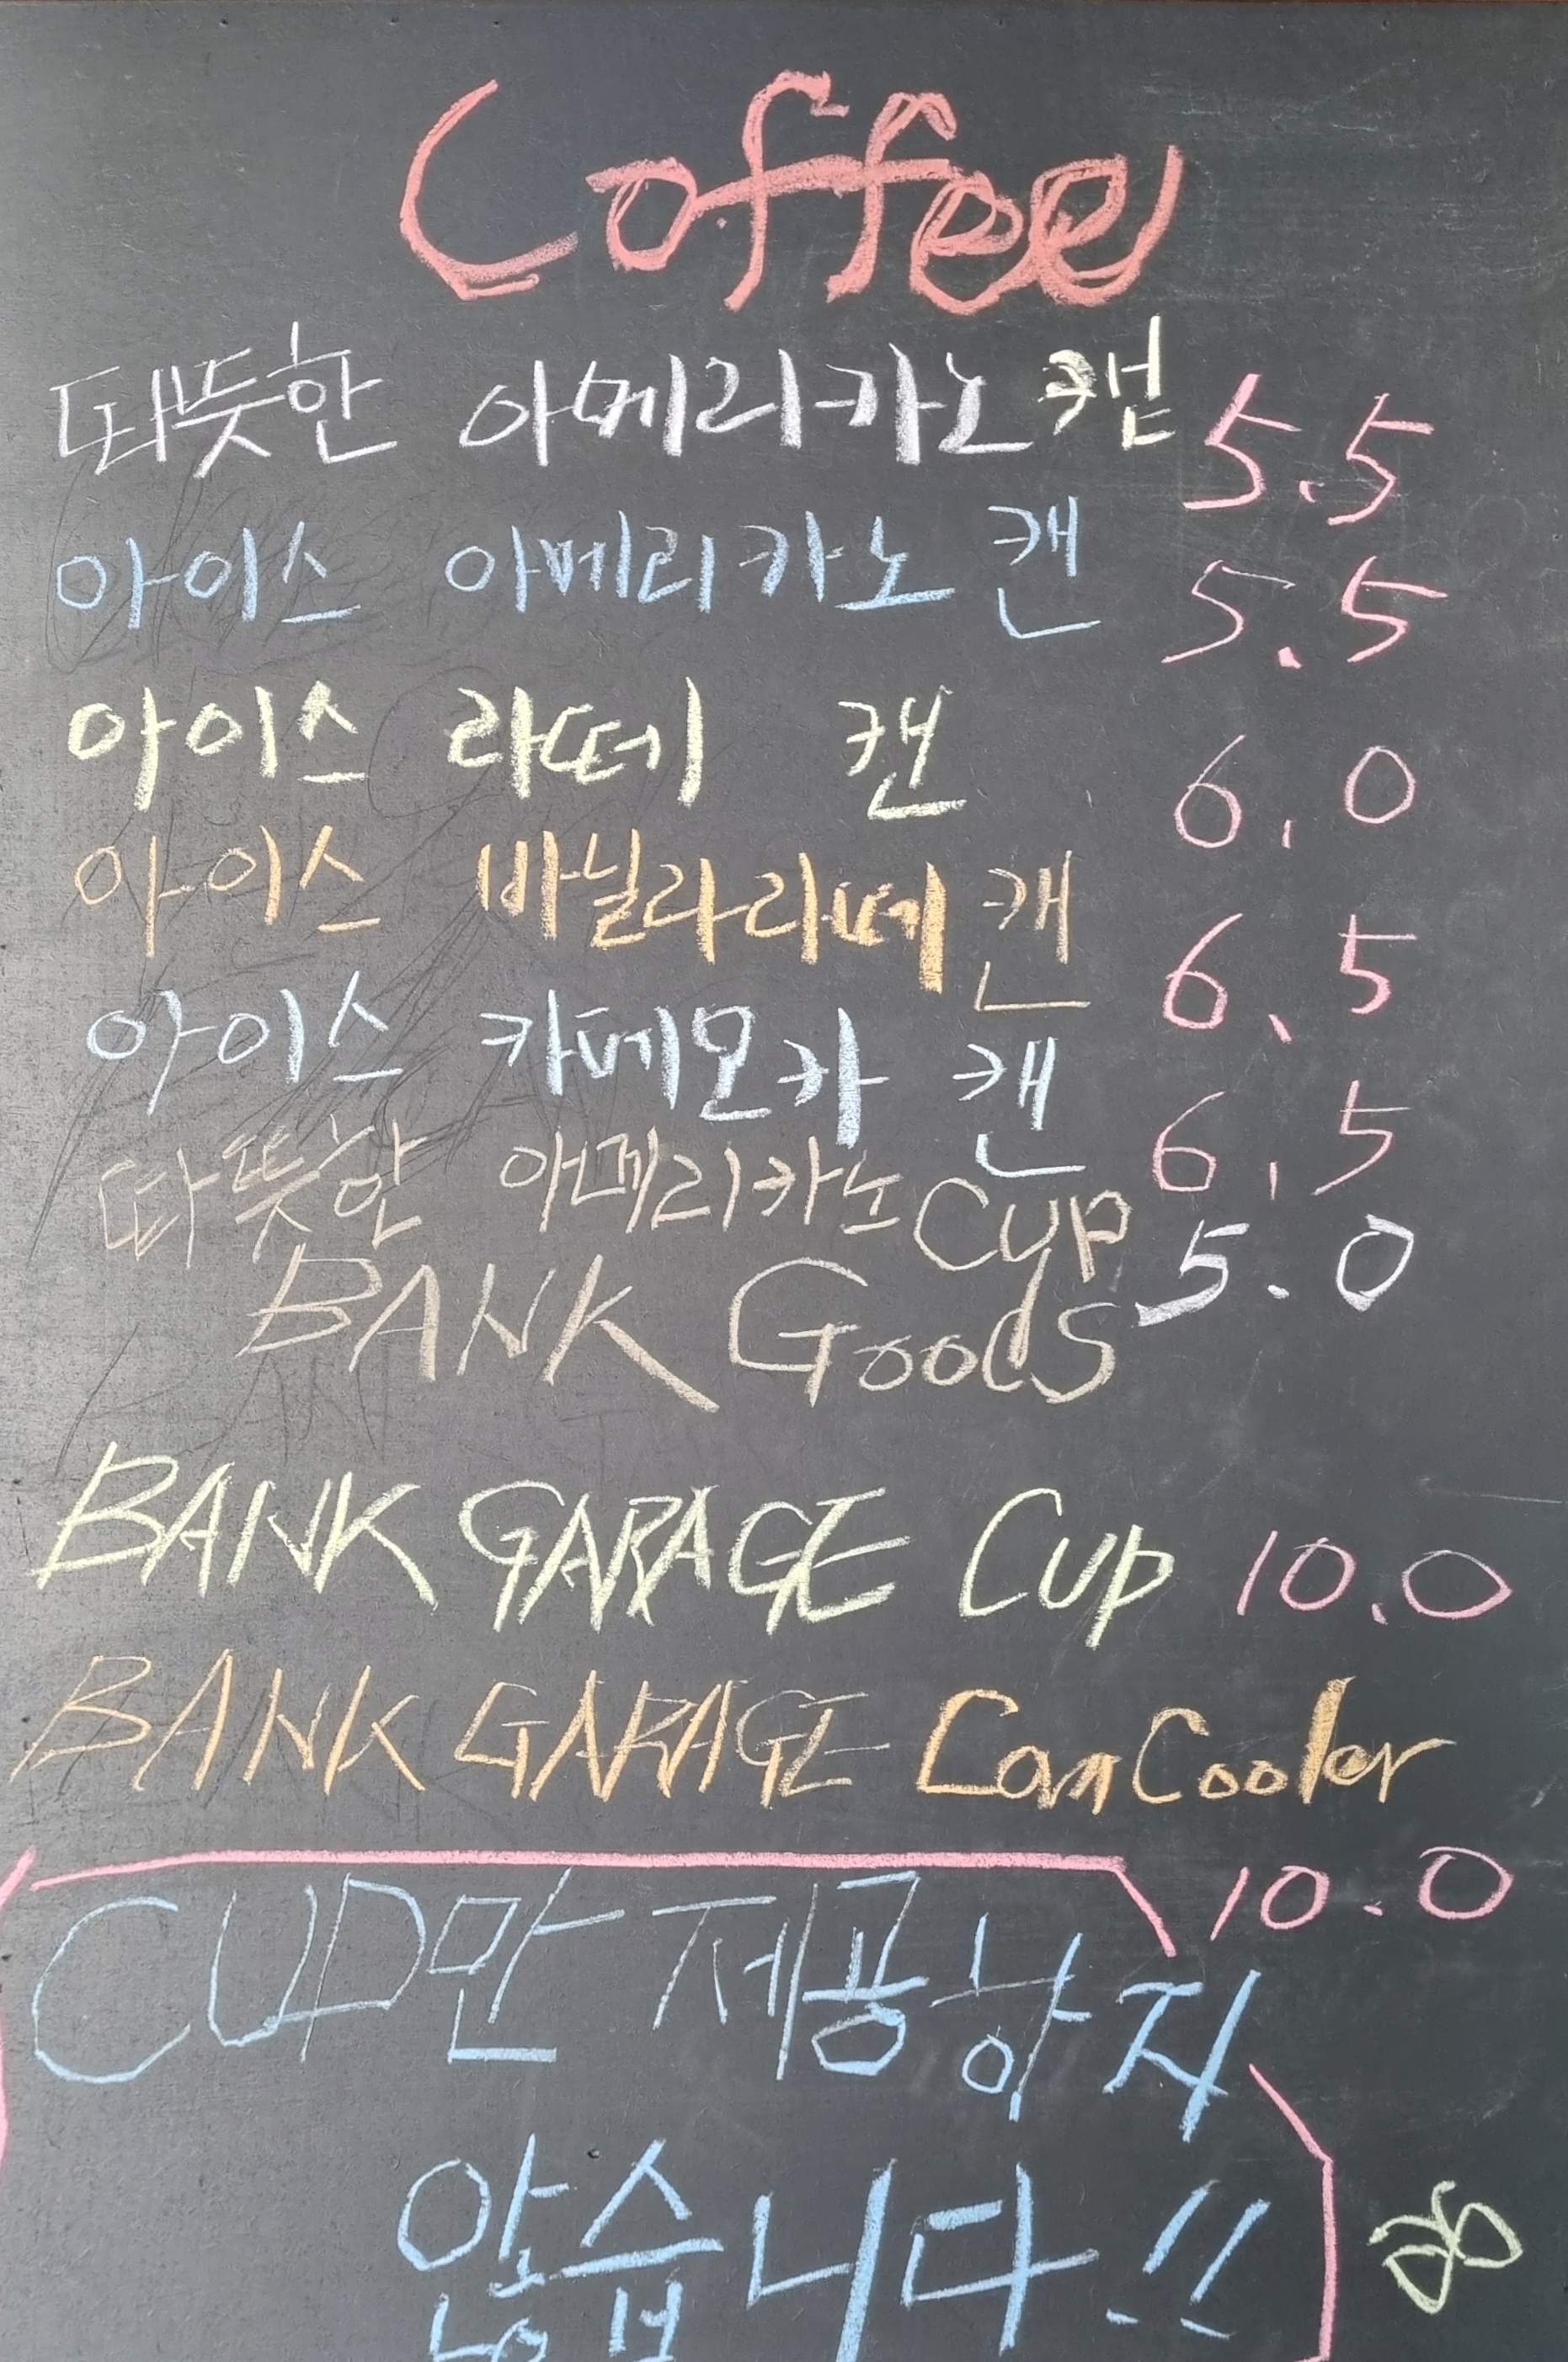 Coffee
따뜻한 아메리카노캔 5.5
아이스 아메리카노 캔 5.5
아이스 라떼 캔 6.0
아이스 바닐라라떼 캔 6.5
아이스 카페모카 캔 6.5
따뜻한 아메리카노 CUP 5.0
BANK Goods
BANK GARAGE Cup 10.0
BANK GARAGE Can Cooler
10.0
CUP만 제공하지
않습니다!!